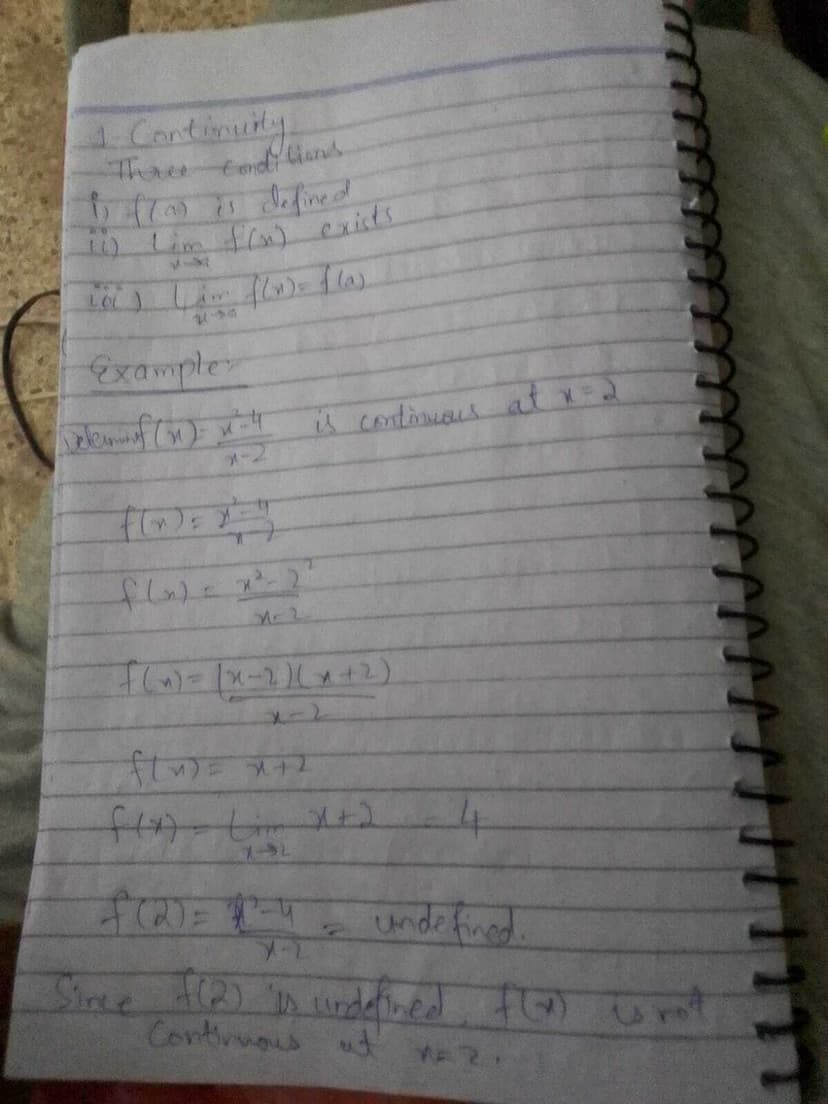 1. Continuity
Three conditions
i) f(a) is defined
ii) Lim f(x) exists
x→a
iii) Lim f(x) = f(a)
x→a
Example:
f(x) = x²-4 / x-2 is continuous at x=2
f(x) = x²-4 / x-2
f(x) = x²-2² / x-2
f(x) = (x-2)(x+2) / x-2
f(x) = x+2
f(x) = Lim x+2 = 4
x→2
f(2) = x²-4 / x-2 = undefined.
Since f(2) is undefined, f(x) is not
Continuous at x=2.